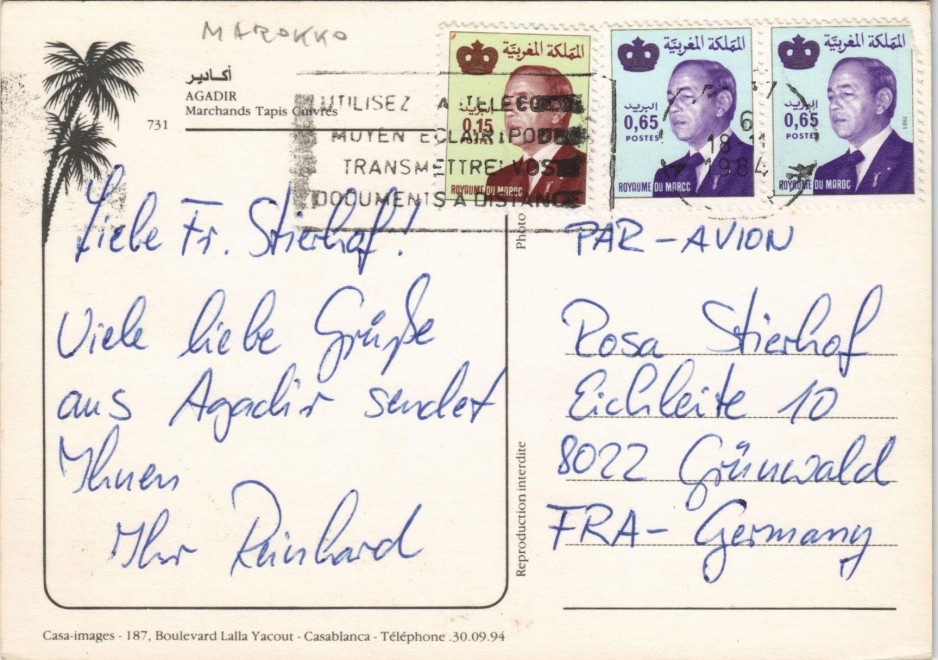 MAROKKO
أكادير
AGADIR
Marchands Tapis Cuivres
731
المملكة المغربية
البريد
0,15
POSTES
ROYAUME DU MAROC
المملكة المغربية
البريد
0,65
POSTES
ROYAUME DU MAROC
المملكة المغربية
البريد
0,65
POSTES
ROYAUME DU MAROC
1981
UTILISEZ LA TELECOPIE
MOYEN ECLAIR POUR
TRANSMETTRE VOS
DOCUMENTS A DISTANCE
6
18 11
1984
Liebe Fr. Stierhof!
Viele liebe Grüße
aus Agadir sendet
Ihnen
Ihr Reinhard
Photo
Reproduction interdite
PAR-AVION
Rosa Stierhof
Eichleite 10
8022 Grünwald
FRA- Germany
Casa-images - 187, Boulevard Lalla Yacout - Casablanca - Téléphone .30.09.94